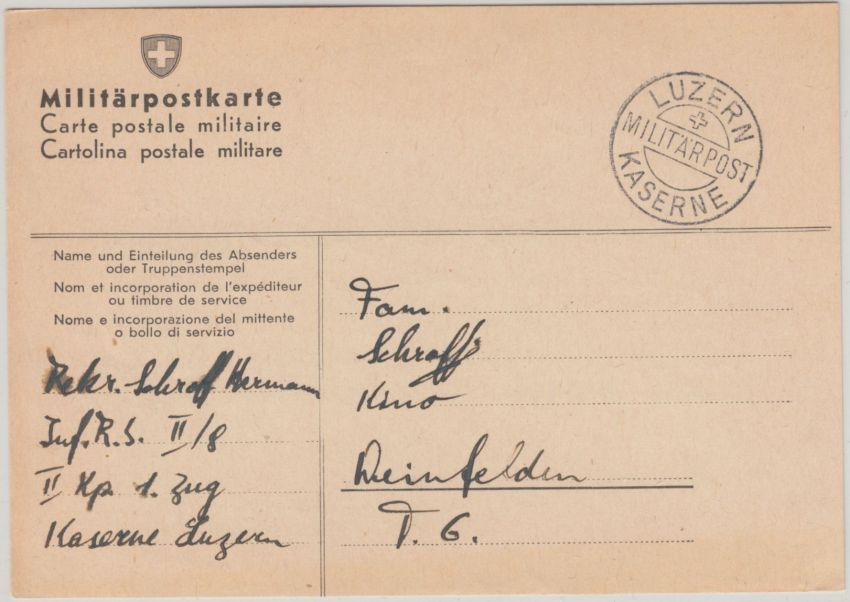 Militärpostkarte
Carte postale militaire
Cartolina postale militare
LUZERN
MILITÄRPOST
KASERNE
Name und Einteilung des Absenders
oder Truppenstempel
Nom et incorporation de l'expéditeur
ou timbre de service
Nome e incorporazione del mittente
o bollo di servizio
Rekr. Schroff Hermann
Inf. R. S. II/8
II Kp. 1. Zug
Kaserne Luzern
Fam.
Schroff
Kino
Weinfelden
T. G.